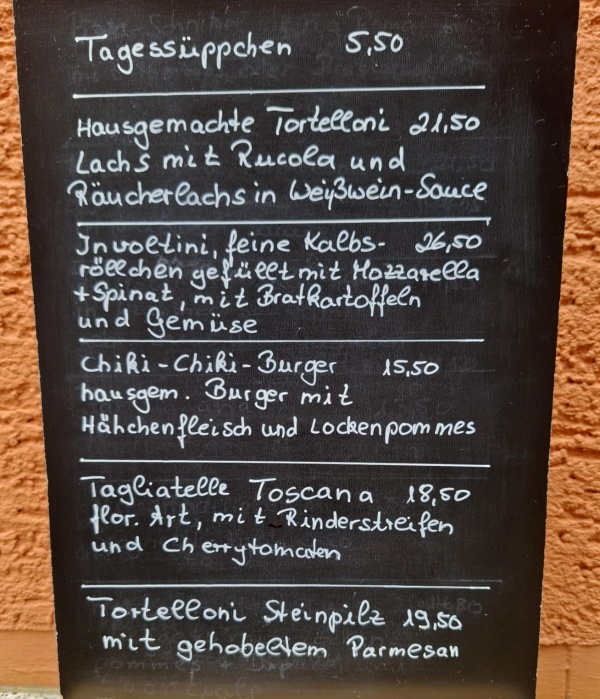 Tagessüppchen 5,50
Hausgemachte Tortelloni 21,50
Lachs mit Rucola und
Räucherlachs in Weißwein-Sauce
Involtini, feine Kalbs- 26,50
röllchen gefüllt mit Mozzarella
+Spinat, mit Bratkartoffeln
und Gemüse
Chiki-Chiki-Burger 15,50
hausgem. Burger mit
Hähchenfleisch und Lockenpommes
Tagliatelle Toscana 18,50
flor. Art, mit Rinderstreifen
und Cherrytomaten
Tortelloni Steinpilz 19,50
mit gehobeltem Parmesan